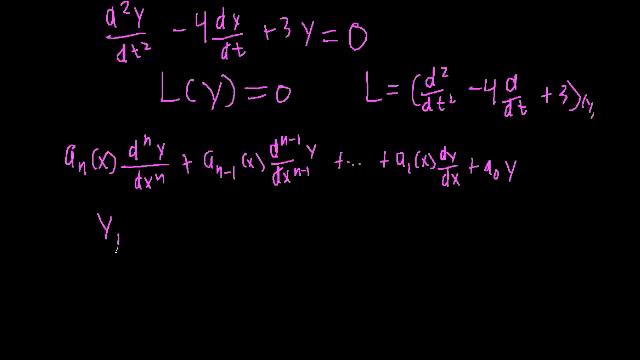 d²y/dt² - 4 dy/dt + 3y = 0
L(y) = 0 L = (d²/dt² - 4 d/dt + 3)(y)
aₙ(x) dⁿy/dxⁿ + aₙ₋₁(x) dⁿ⁻¹y/dxⁿ⁻¹ + ... + a₁(x) dy/dx + a₀ y
y₁